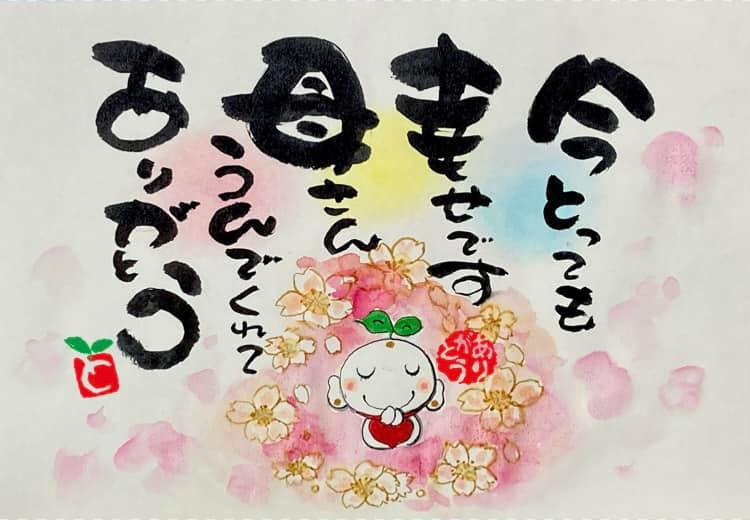 今とっても
幸せです
母さん
うんでくれて
ありがとう
ありがとう